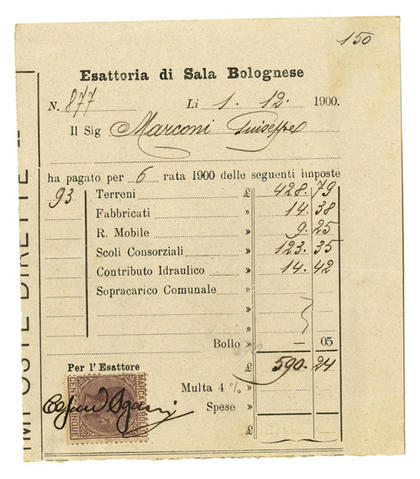 150
Esattoria di Sala Bolognese
N. 877 Li 1. 12. 1900.
Il Sig Marconi Giuseppe
ha pagato per 6 rata 1900 delle seguenti imposte
93 Terreni £ 428.79
Fabbricati » 14.38
R. Mobile » 9.25
Scoli Consorziali » 123.35
Contributo Idraulico » 14.42
Sopracarico Comunale »
»
»
Bollo » — 05
Per l'Esattore £ 590.24
Multa 4 % »
Spese »
£
MARCA DA BOLLO
CENT. CINQUE
IMPOSTE DIRETTE